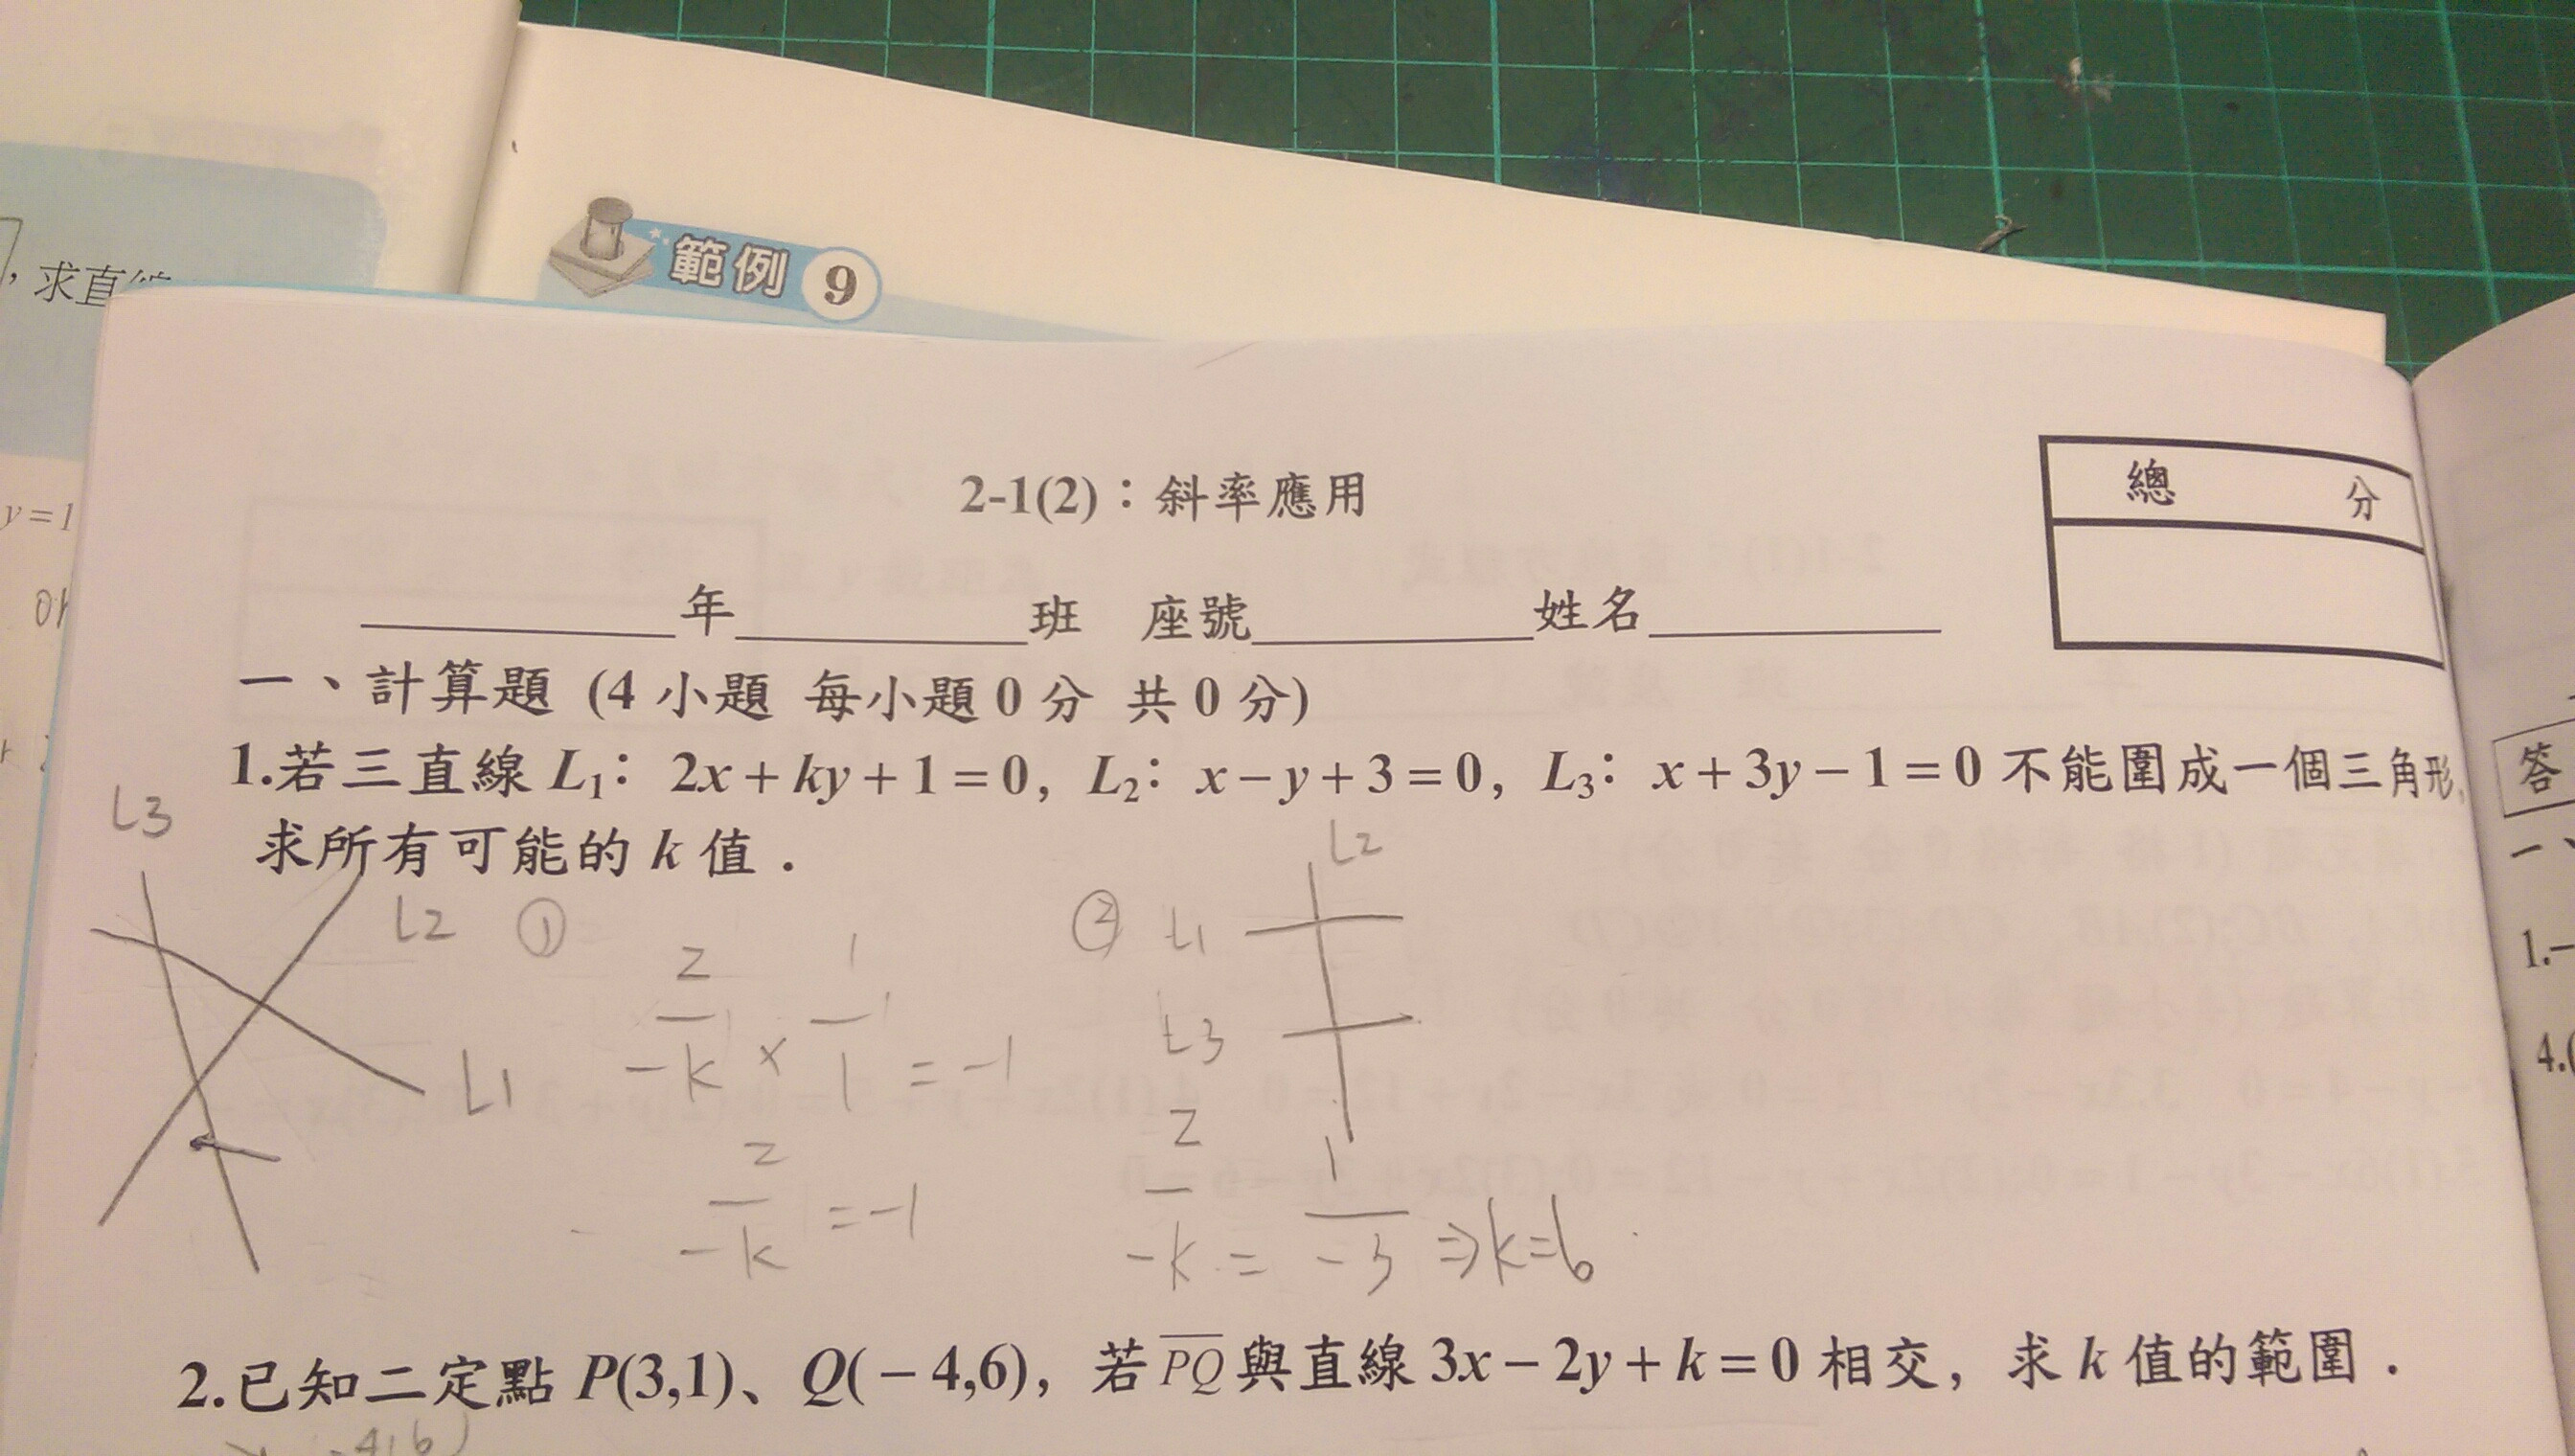 範例 9
, 求直線
2-1(2)：斜率應用
總 分
y=1
年 班 座號 姓名
一、計算題 (4 小題 每小題 0 分 共 0 分)
1.若三直線 L₁：2x+ky+1=0, L₂：x-y+3=0, L₃：x+3y-1=0 不能圍成一個三角形,
答
求所有可能的 k 值.
L3
L2
L1
①
2/-k × 1/1 = -1
2/-k = -1
②
L2
L1
L3
2/-k = 1/-3 ⇒ k=6
一、
1.
4.(
2.已知二定點 P(3,1)、Q(-4,6), 若 P̅Q̅ 與直線 3x-2y+k=0 相交, 求 k 值的範圍.
-4,6)